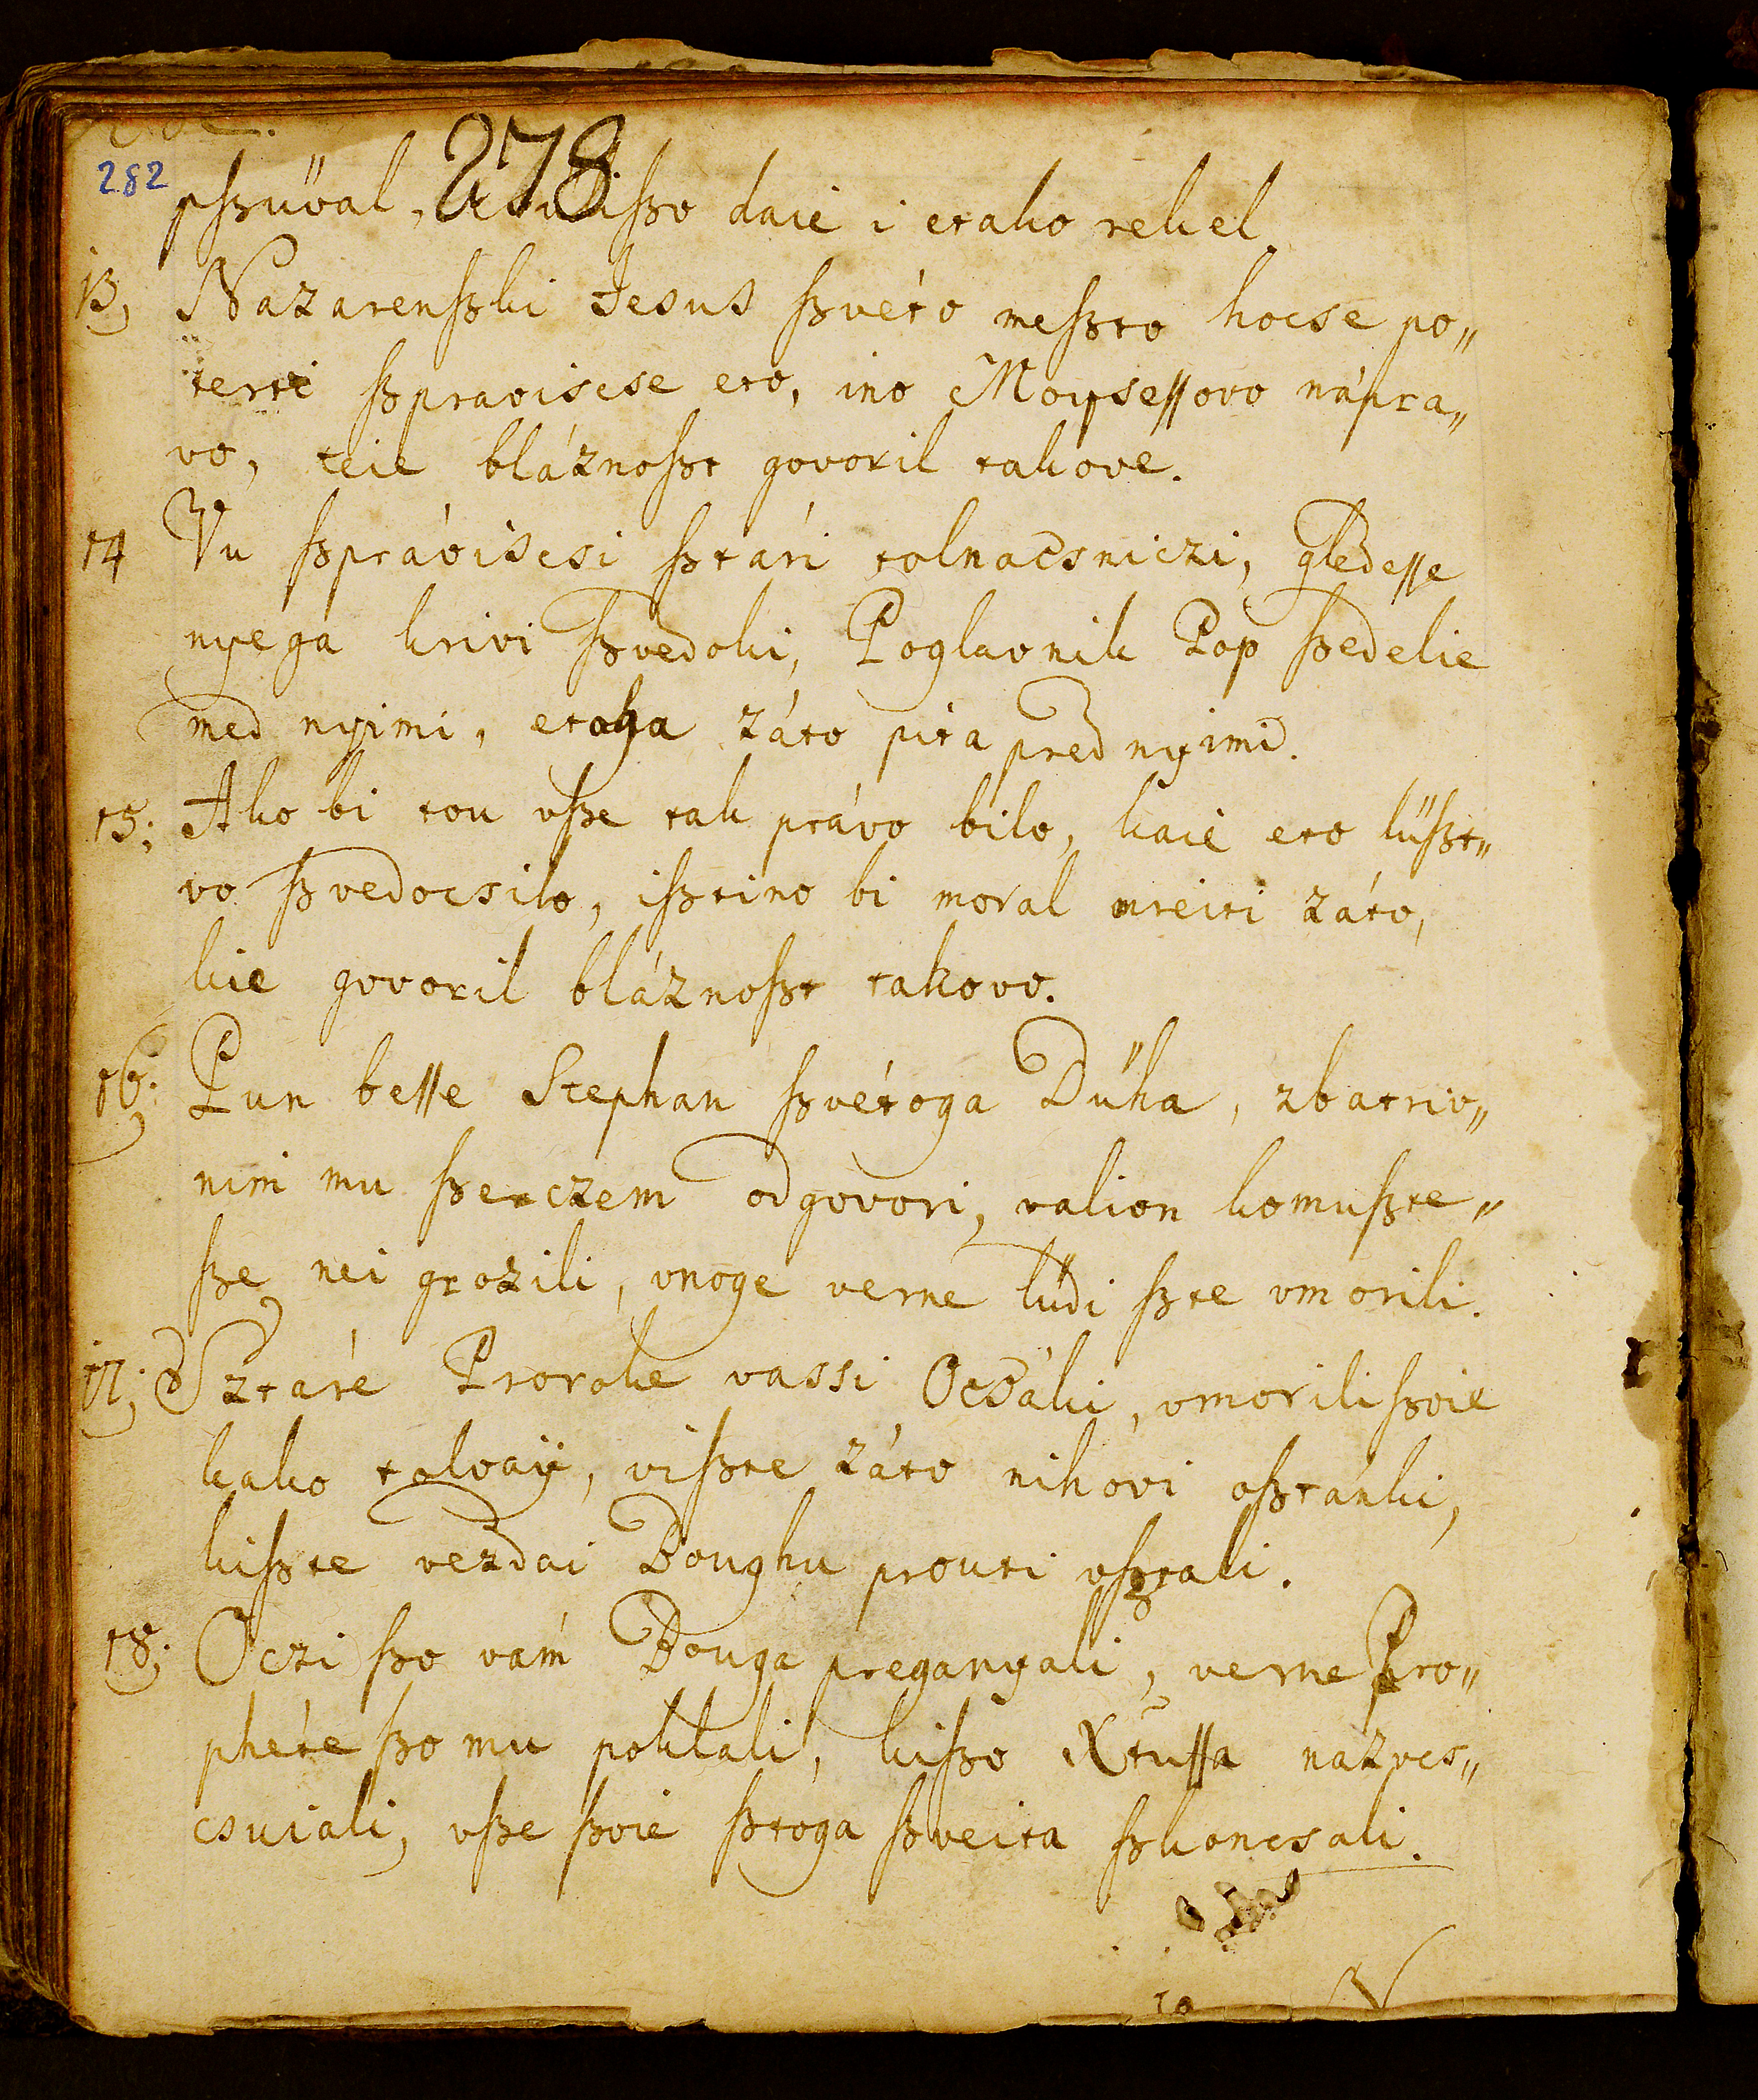 282
278
pſzüval, ſzo daié i etako rekel.
13, Nazarenſzki Jesus ſzvéto meſzto hocse po„
terti ſzpraviscse eto, ino Moyseſſovo nápra„
vo, teie bláznoſzt govoril takove.
14 Vu ſzpráviscsi ſztári tolnacsniczi, gledeſſe
nyega krivi ſzvedoki, Poglavnik Pop ſzedelie
med nyimi, etoga záto pita pred nyimi.
15; Ako bi tou vſze tak právo bilo, kaié eto lüſzt„
vo ſzvedocsilo, iſztino bi moral mreiti záto,
kie govoril bláznoſzt takovo.
16; Pun beſſe Stephan ſzvétoga Düha, zbatriv„
nim mu ſzerczem odgovori, valion komuſzte„
ſze nei grozili, vnoge verne lüdi ſzte vmorili.
17; Sztaré Proroke vassi Ocsáki, vmoriliſzoie
kako tolvaÿ, viſzte záto nihóvi oſztánki,
kiſzte vezdai Boughu prouti vſztali.
18; Oczi ſzo vám Bouga preganyali, verne Pro„
phéte ſzo mu poklali, kiſzo Xtuſſa nazves„
csuiali, vſze ſzoié ſztoga ſzveita ſzkoncsali.